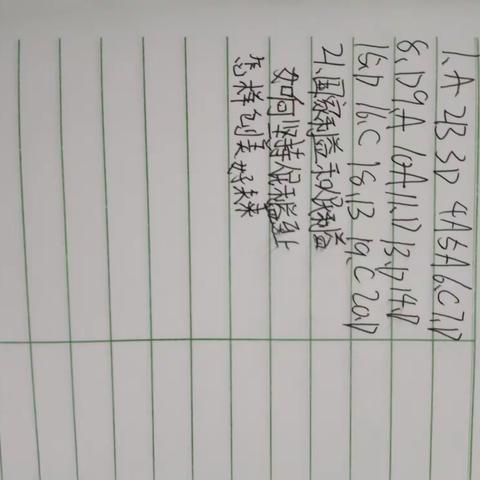 1.A 2B 3D 4A 5A 6.C 7.D
8.D 9.A 10A 11.D 13.D 14.D
15.D 16C 18.B 19.C 20.D
21.国家利益和人民利益
如何坚持人民利益至上
怎样创美好未来